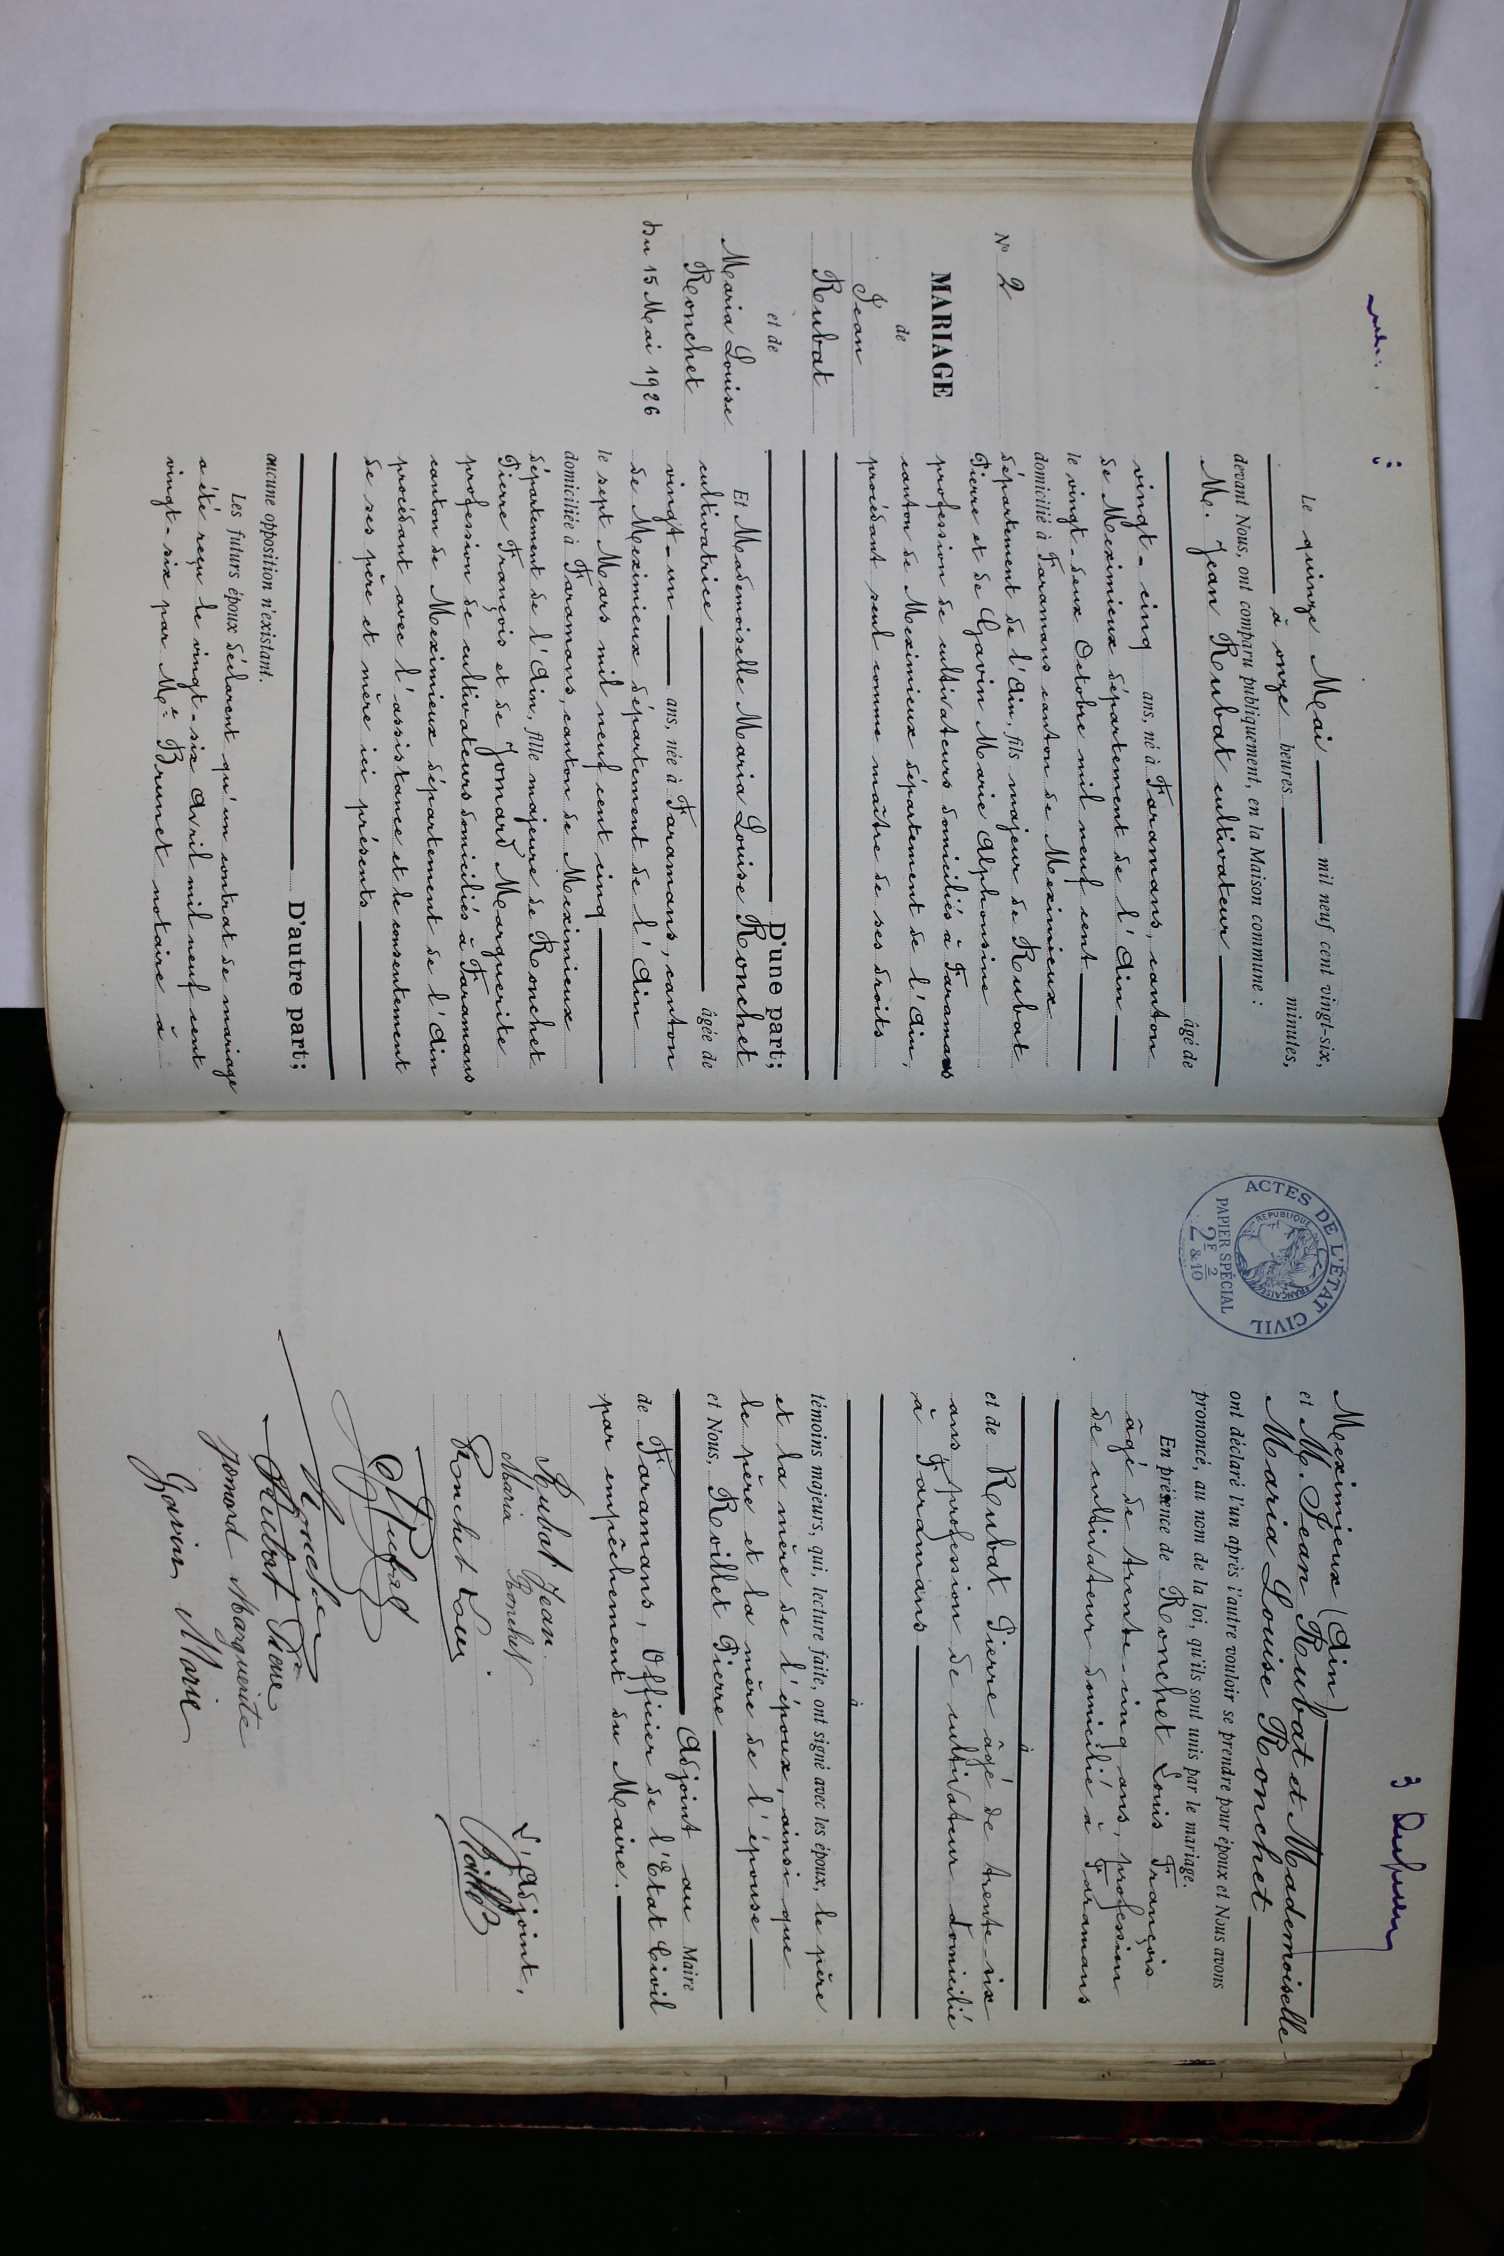 Nº 2
MARIAGE
de
Jean
Rubat
et de
Maria Louise
Ronchet
Du 15 Mai 1926
Le quinze Mai mil neuf cent vingt-six,
à onze heures minutes,
devant Nous, ont comparu publiquement, en la Maison commune :
M. Jean Rubat cultivateur
âgé de
vingt-cinq ans, né à Faramans, canton
de Meximieux département de l'Ain
le vingt-deux Octobre mil neuf cent
domicilié à Faramans canton de Meximieux
département de l'Ain, fils majeur de Rubat
Pierre et de Gavin Marie Alphonsine
profession de cultivateurs domiciliés à Faramans
canton de Meximieux département de l'Ain,
procédant seul comme maître de ses droits
D'une part;
Et Mademoiselle Maria Louise Ronchet
cultivatrice âgée de
vingt-un ans, née à Faramans, canton
de Meximieux département de l'Ain
le sept Mars mil neuf cent cinq
domiciliée à Faramans, canton de Meximieux
département de l'Ain, fille majeure de Ronchet
Pierre François et de Jomard Marguerite
profession de cultivateurs domiciliés à Faramans
canton de Meximieux département de l'Ain
procédant avec l'assistance et le consentement
de ses père et mère ici présents
D'autre part;
aucune opposition n'existant.
Les futurs époux déclarent qu'un contrat de mariage
a été reçu le vingt-six Avril mil neuf cent
vingt-six par Me Brunet notaire à
ACTES DE L'ÉTAT CIVIL
RÉPUBLIQUE FRANÇAISE
PAPIER SPÉCIAL
2F & 2/10
Meximieux (Ain)
et M. Jean Rubat et Mademoiselle
Maria Louise Ronchet
ont déclaré l'un après l'autre vouloir se prendre pour époux et Nous avons
prononcé, au nom de la loi, qu'ils sont unis par le mariage.
En présence de Ronchet Louis François
âgé de trente-cinq ans, profession
de cultivateur domicilié à Faramans
à
et de Rubat Pierre âgé de trente-six
ans, profession de cultivateur domicilié
à Faramans
à
témoins majeurs, qui, lecture faite, ont signé avec les époux, le père
et la mère de l'époux, ainsi que
le père et la mère de l'épouse
et Nous, Roillet Pierre
Adjoint au Maire
de Faramans, Officier de l'Etat Civil
par empêchement du Maire.
Rubat Jean
Maria Ronchet
L'Adjoint,
Ronchet Louis
Roillet
Rubat
Ronchet
Rubat Pierre
Jomard Marguerite
Gavin Marie